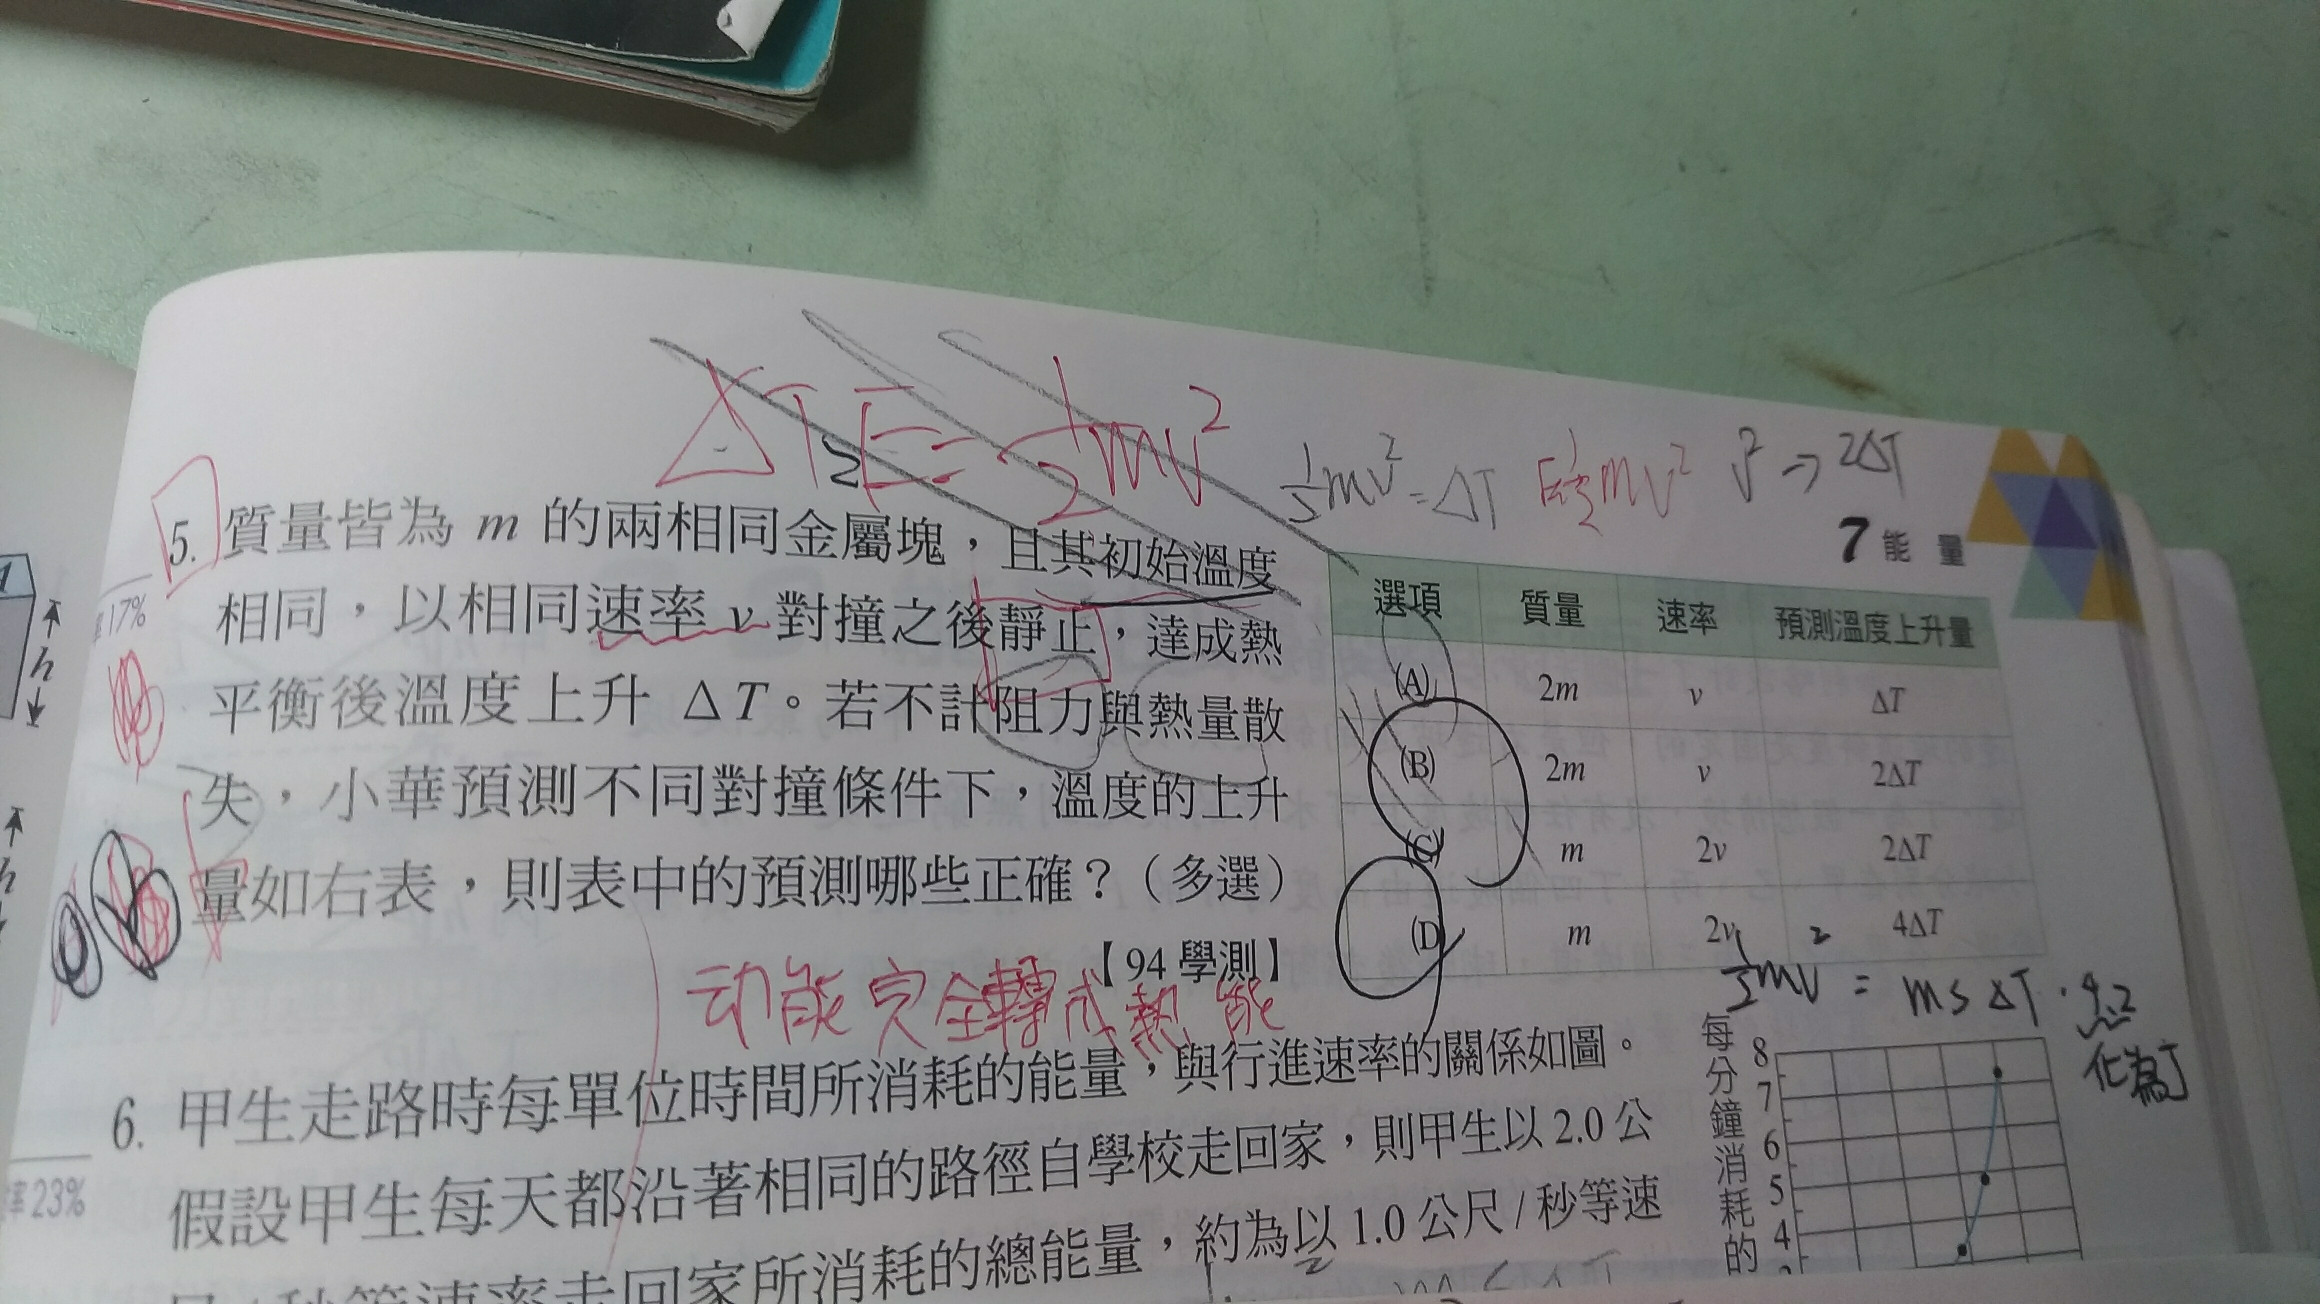 ΔTE=½mv²
½mv²=ΔT E=½mv² v²→2ΔT
7 能 量
5. 質量皆為 m 的兩相同金屬塊，且其初始溫度
相同，以相同速率 v 對撞之後靜止，達成熱
平衡後溫度上升 ΔT。若不計阻力與熱量散
失，小華預測不同對撞條件下，溫度的上升
量如右表，則表中的預測哪些正確？（多選）
【94 學測】
17%
h
选項 質量 速率 預測溫度上升量
(A) 2m v ΔT
(B) 2m v 2ΔT
(C) m 2v 2ΔT
(D) m 2v 4ΔT
½mv² = msΔT·4.2
化為J
动能完全轉成熱能
6. 甲生走路時每單位時間所消耗的能量，與行進速率的關係如圖。
假設甲生每天都沿著相同的路徑自學校走回家，則甲生以 2.0 公
尺/秒等速率走回家所消耗的總能量，約為以 1.0 公尺/秒等速
率23%
每分鐘消耗的
8
7
6
5
4